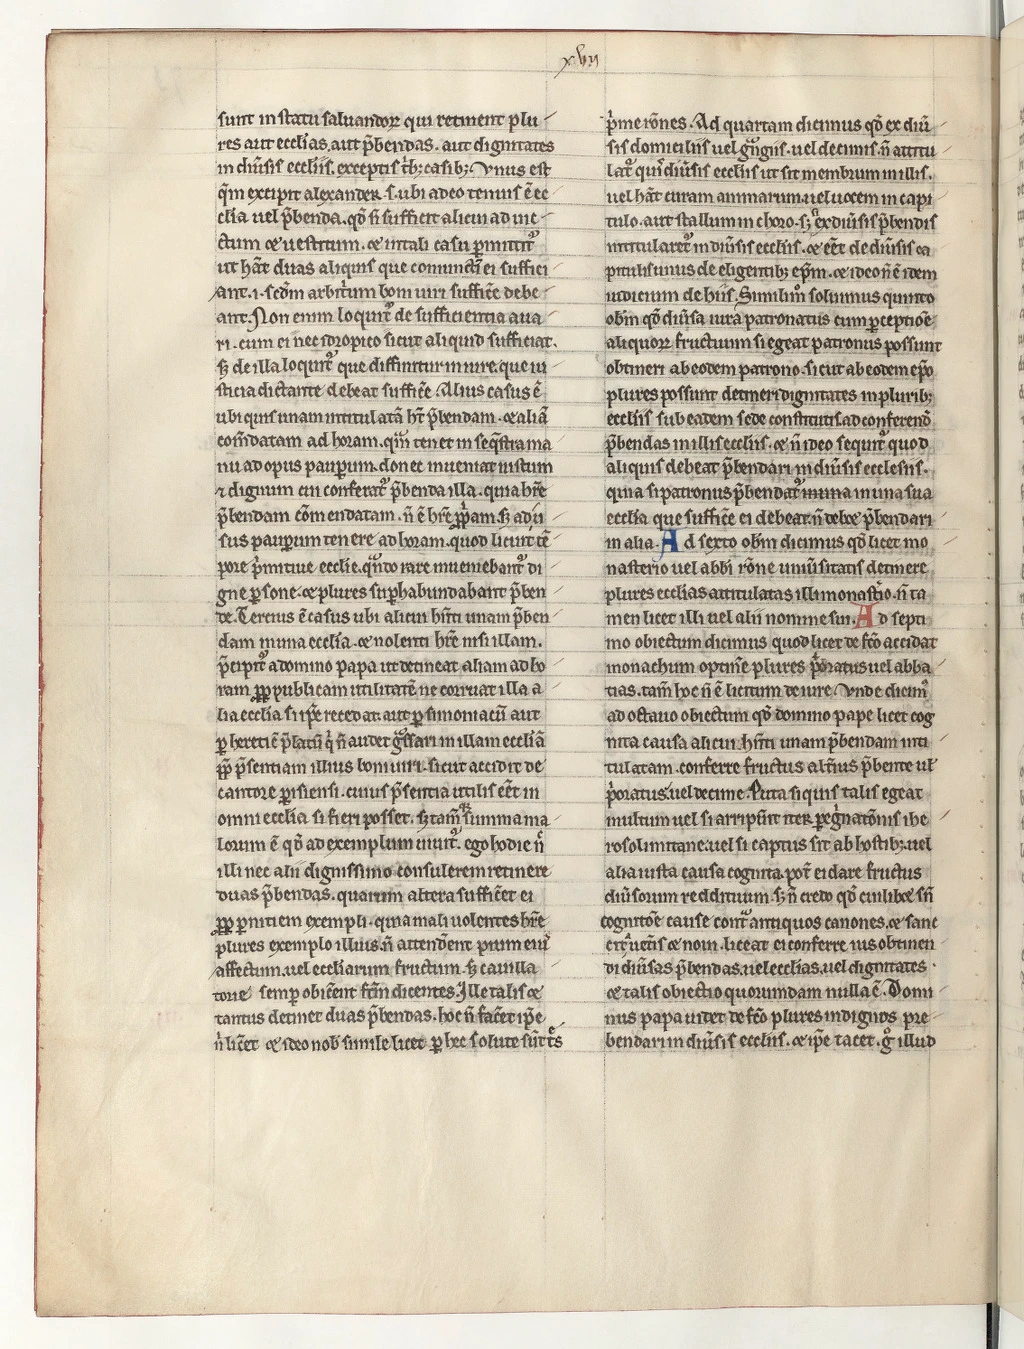 xvii
sunt in statu saluandoꝝ qui retinent plu
res aut ecclīas. aut p̄bendas. aut dignitates
in diūsis ecclīis. exceptis tͥbꝫ casibꝫ. Vnus est
q̄m excipit alexander .s. ubi adeo tenuis ē ec
clīa uel p̄benda. qd̄ n̄ sufficit alicui ad uic
tum ⁊ uestitum. ⁊ in tali casu ꝑmittit᷑
ut hāt duas aliquis que coniuncte ei suffici
ant. .i. scd̄m arbitͥum boni uiri suffic̄e debe
ant. Non enim loquit᷑ de sufficientia aua
ri. cum ei nec ydropico sicut aliquid sufficiat.
sꝫ de illa loquit᷑ que diffinitur in iure. que iu
sticia dictante debeat suffic̄e. Alius casus ē
ubi quis unam intitulatā hꝫ p̄bendam. ⁊ aliā
com̄datam ad horam. qͣm tenet in seq̄stra ma
nu ad opus pauꝑum. donec inueniat iustum
⁊ dignum cui conferat᷑ p̄benda illa. quia hr̄e
p̄bendam com̄endatam. n̄ ē hr̄e pp̄am. sꝫ ad u
sus pauꝑum tenere ad horam. quod licuit tē
pore pͥmitiue ecclīe. qͣndo raro inueniebant᷑ di
gne ꝑsone. ⁊ plures suꝑhabundabant p̄ben
de. Tercius ē casus ubi alicui hn̄ti unam p̄ben
dam in una ecclīa. ⁊ nolenti hr̄e nisi illam.
p̄cipit᷑ a domino papa ut detineat aliam ad ho
ram ꝓpt̄ publicam utilitatē ne corruat illa a
lia ecclīa si ip̄e recedat. aut ꝑ simoniacū aut
ꝑ hereticū p̄latū qͥ n̄ audet gͣssari in illam ecclīā
ꝓpt̄ p̄sentiam illius boni uiri. sicut accidit de
cantore ꝑisiensi. cuius p̄sentia utilis eēt in
omni ecclīa si fieri posset. sꝫ tam̄ summa ma
lorum ē qd̄ ad exemplum uiuit᷑. ego hodie n̄
illi nec alii dignissimo consulerem retinere
duas p̄bendas. quarum altera suffic̄et ei
ꝓpt̄ ꝑnitiem exempli. quia mali uolentes hr̄e
plures exemplo illius. n̄ attendent pium eiꝰ
affectum. uel eccliarum fructum. sꝫ cauilla
torie semꝑ obicient fcm̄ dicentes. Ille talis ⁊
tantus detinet duas p̄bendas. hoc n̄ faceret ip̄e
n̄ liceret ⁊ ideo nob̄ simile licet. ꝑ hec solute sūt tͤs
pͥme rōnes. Ad quartam dicimus qd̄ ex diū
sis domiciliis uel gͣngiis. uel decimis. n̄ attitu
lat᷑ quis diūsis ecclīis ut sit membrum in illis.
uel hāt curam animarum. uel uocem in capi
tulo. aut stallum in choro. sꝫ ex diūsis p̄bendis
intitularet᷑ in diūsis ecclīis. ⁊ eēt de diūsis ca
pitulis unus de eligentibꝫ ep̄m. ⁊ ideo n̄ ē idem
iudicium de hiis. Similit᷑ soluimus quinto
obm̄ qd̄ diūsa iura patronatus cum ꝑceptiōe
aliquorꝝ fructuum si egeat patronus possunt
obtineri ab eodem patrono. sicut ab eodem ep̄o
plures possunt detineri dignitates in pluribꝫ
ecclīis sub eadem sede constitutis ad conferend̄
p̄bendas in illis ecclīis. ⁊ n̄ ideo sequit᷑ quod
aliquis debeat p̄bendari in diūsis ecclesiis.
quia si patronus p̄bendat᷑ in una sua
ecclīa que suffic̄e ei debeat. n̄ debet p̄bendari
in alia. Ad sexto obm̄ dicimus qd̄ licet mo
nasterio uel abb̄i rōne uniūsitatis detinere
plures ecclīas attitulatas illi monast̄io. n̄ ta
men licet illi uel alii nomine sui. Ad septi
mo obiectum dicimus quod licet de fc̄o accidat
monachum optin̄e plures pͥoratus uel abba
tias. tam̄ hoc n̄ ē licitum de iure. Vnde dicim᷑
ad octauo obiectum qd̄ domino pape licet cog
nita causa alicui hn̄ti unam p̄bendam inti
tulatam. conferre fructus alt̄ius p̄bende ul̄
pͥoratus. uel decime. Puta si quis talis egeat
multum uel si arripūit iter ꝑegͥnatōnis ihe
rosolimitane. uel si captus sit ab hostibꝫ. uel
alia iusta causa cognita. pot̄ ei dare fructus
diūsorum reddituum. sꝫ n̄ credo qd̄ cuilibet sn̄
cognitōe cause contͣ antiquos canones. ⁊ sanc
liceat ei conferre ius obtinen
di diūsas p̄bendas. uel ecclīas. uel dignitates.
⁊ talis obiectio quorumdam nulla ē. Domi
nus papa uidet de fc̄o plures indignos pre
bendari in diūsis ecclīis. ⁊ ip̄e tacet. gͦ illud